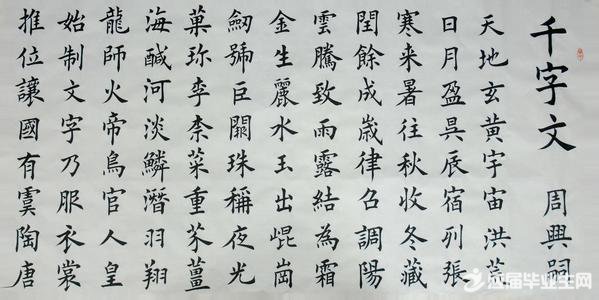 千字文 周興嗣
天地玄黃宇宙洪荒
日月盈昃辰宿列張
寒来暑往秋收冬藏
閏餘成歲律召調陽
雲騰致雨露結為霜
金生麗水玉出崐崗
劒號巨闕珠稱夜光
菓珎李柰菜重芥薑
海鹹河淡鱗潛羽翔
龍師火帝鳥官人皇
始制文字乃服衣裳
推位讓國有虞陶唐
应届毕业生网